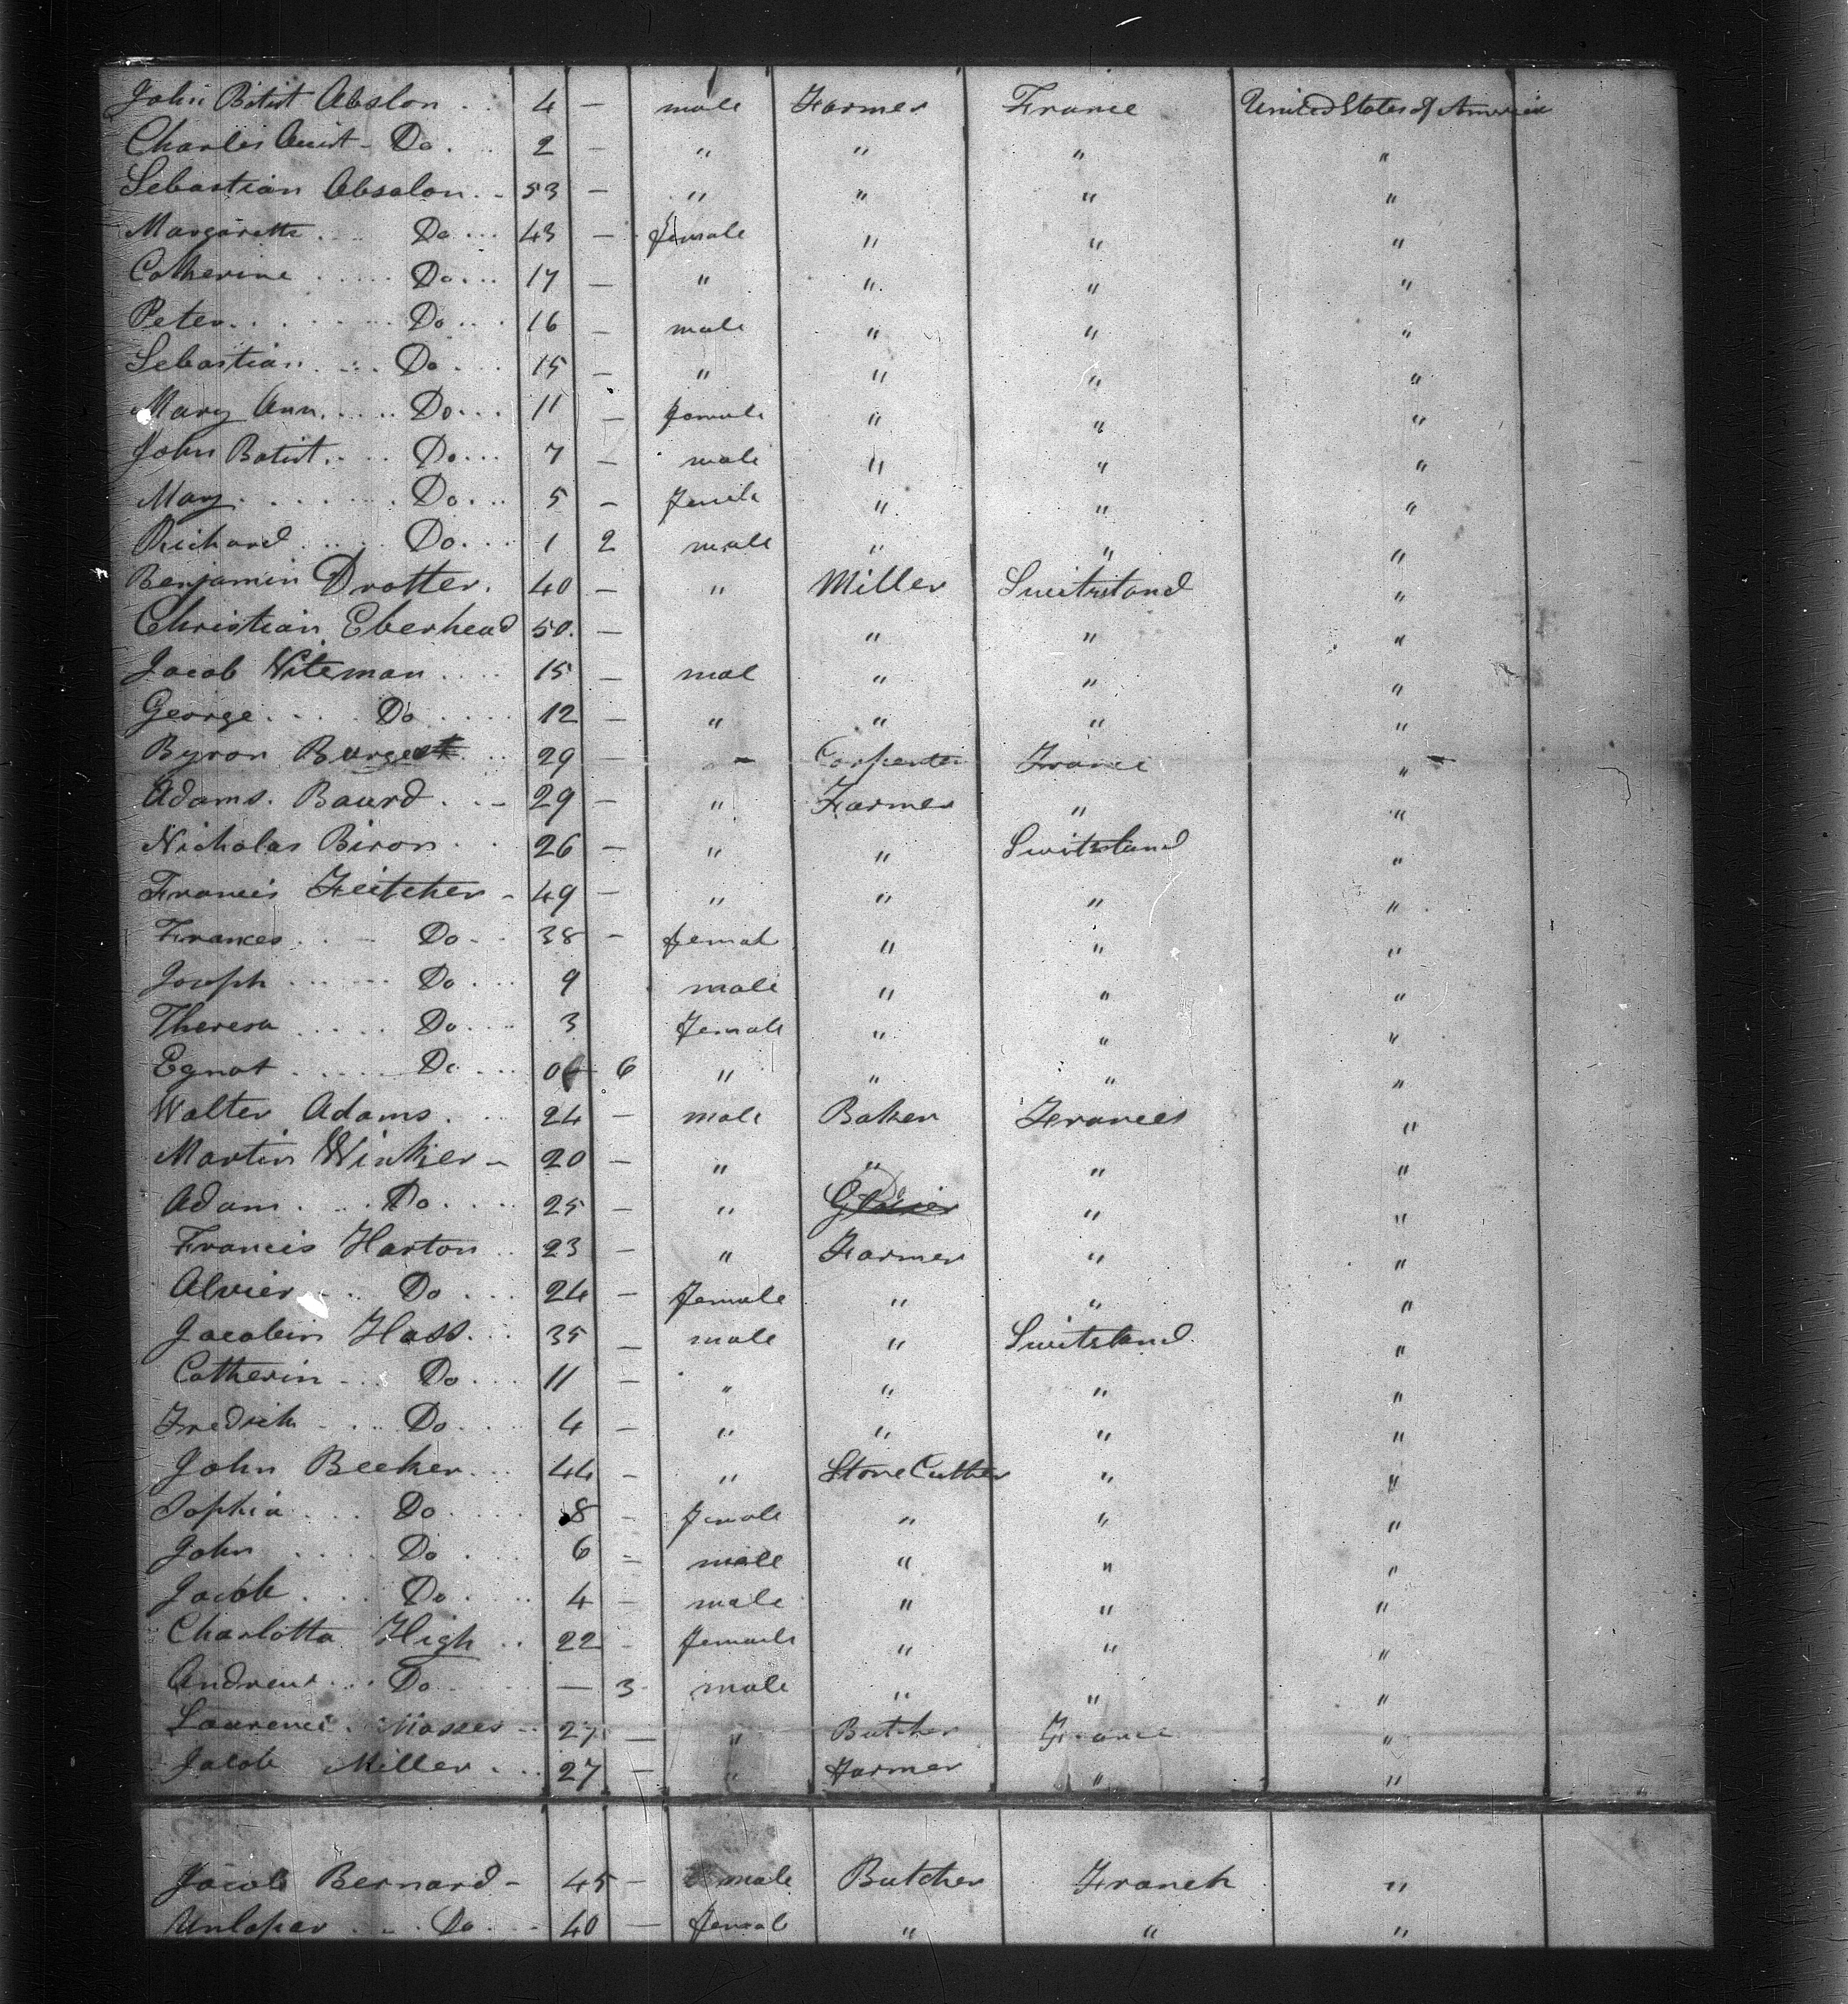 John Batist Abslon . . 4 — male Farmer France United States of America
Charles Do . 2 — " " " "
Sebastian Absalon . - 53 — " " " "
Margarette . . . Do . . . 43 — female " " "
Catherine . . . . . Do . . . 17 — " " " "
Peter . . . . . . . Do . . . 16 — male " " "
Sebastian . . . . Do . . . 15 — " " " "
Mary Ann . . . . Do . . . 11 — female " " "
John Batist . . . Do . . . 7 — male " " "
May . . . . . . . Do . . . 5 — female " " "
Richard . . . . Do . . . 1 2 male " " "
Benjamin Drotter . 40 — " Miller Switzstand "
Christian Eberhead 50 . — " " "
Jacob Witeman . . . . 15 — mal " " "
George . . . . Do . . . . 12 — " " " "
Byron . . 29 — " Carpenter France "
Adams . Baurd . . - 29 — " Farmer " "
Nicholas Biron . . . 26 — " " Switzstand "
Francis Feitcher - 49 — " " " "
Frances . . - Do . . 38 — femal " " "
Joseph . . . . . . Do . . . 9 male " " "
Theresa . . . . . Do . . . 3 female " " "
Egnat . . . . . Do . . . 06 6 " " " "
Walter Adams . . . 24 — male Baker Frances "
Martin Winker - 20 — " " " "
Adam . . . . Do . . . . 25 — " " "
Francis Harton . . 23 — " Farmer " "
Alvier . . . Do . . . . 24 — female " " "
Jacobin Hass . . . 35 — male " Switstand "
Catherin - . . Do . . . 11 — " " " "
Fredrich . . . Do . . . . 4 — " " " "
John Becker . . . 44 — " Stone Cutter " "
Sophia . . . Do . . . . 8 - female " " "
John . . . . Do . . . . 6 - male " " "
Jacob . . . Do . . . . 4 — male " " "
Charlotta High . . 22 - female " " "
Andrew . . . Do . . . — 3 male " " "
Laurence . Masses - 27 — " Butcher France "
Jacob Miller . . . 27 — " Farmer " "
Jacob Bernard - 45 — male Butcher Franch "
Do . . - 40 — femal " " "